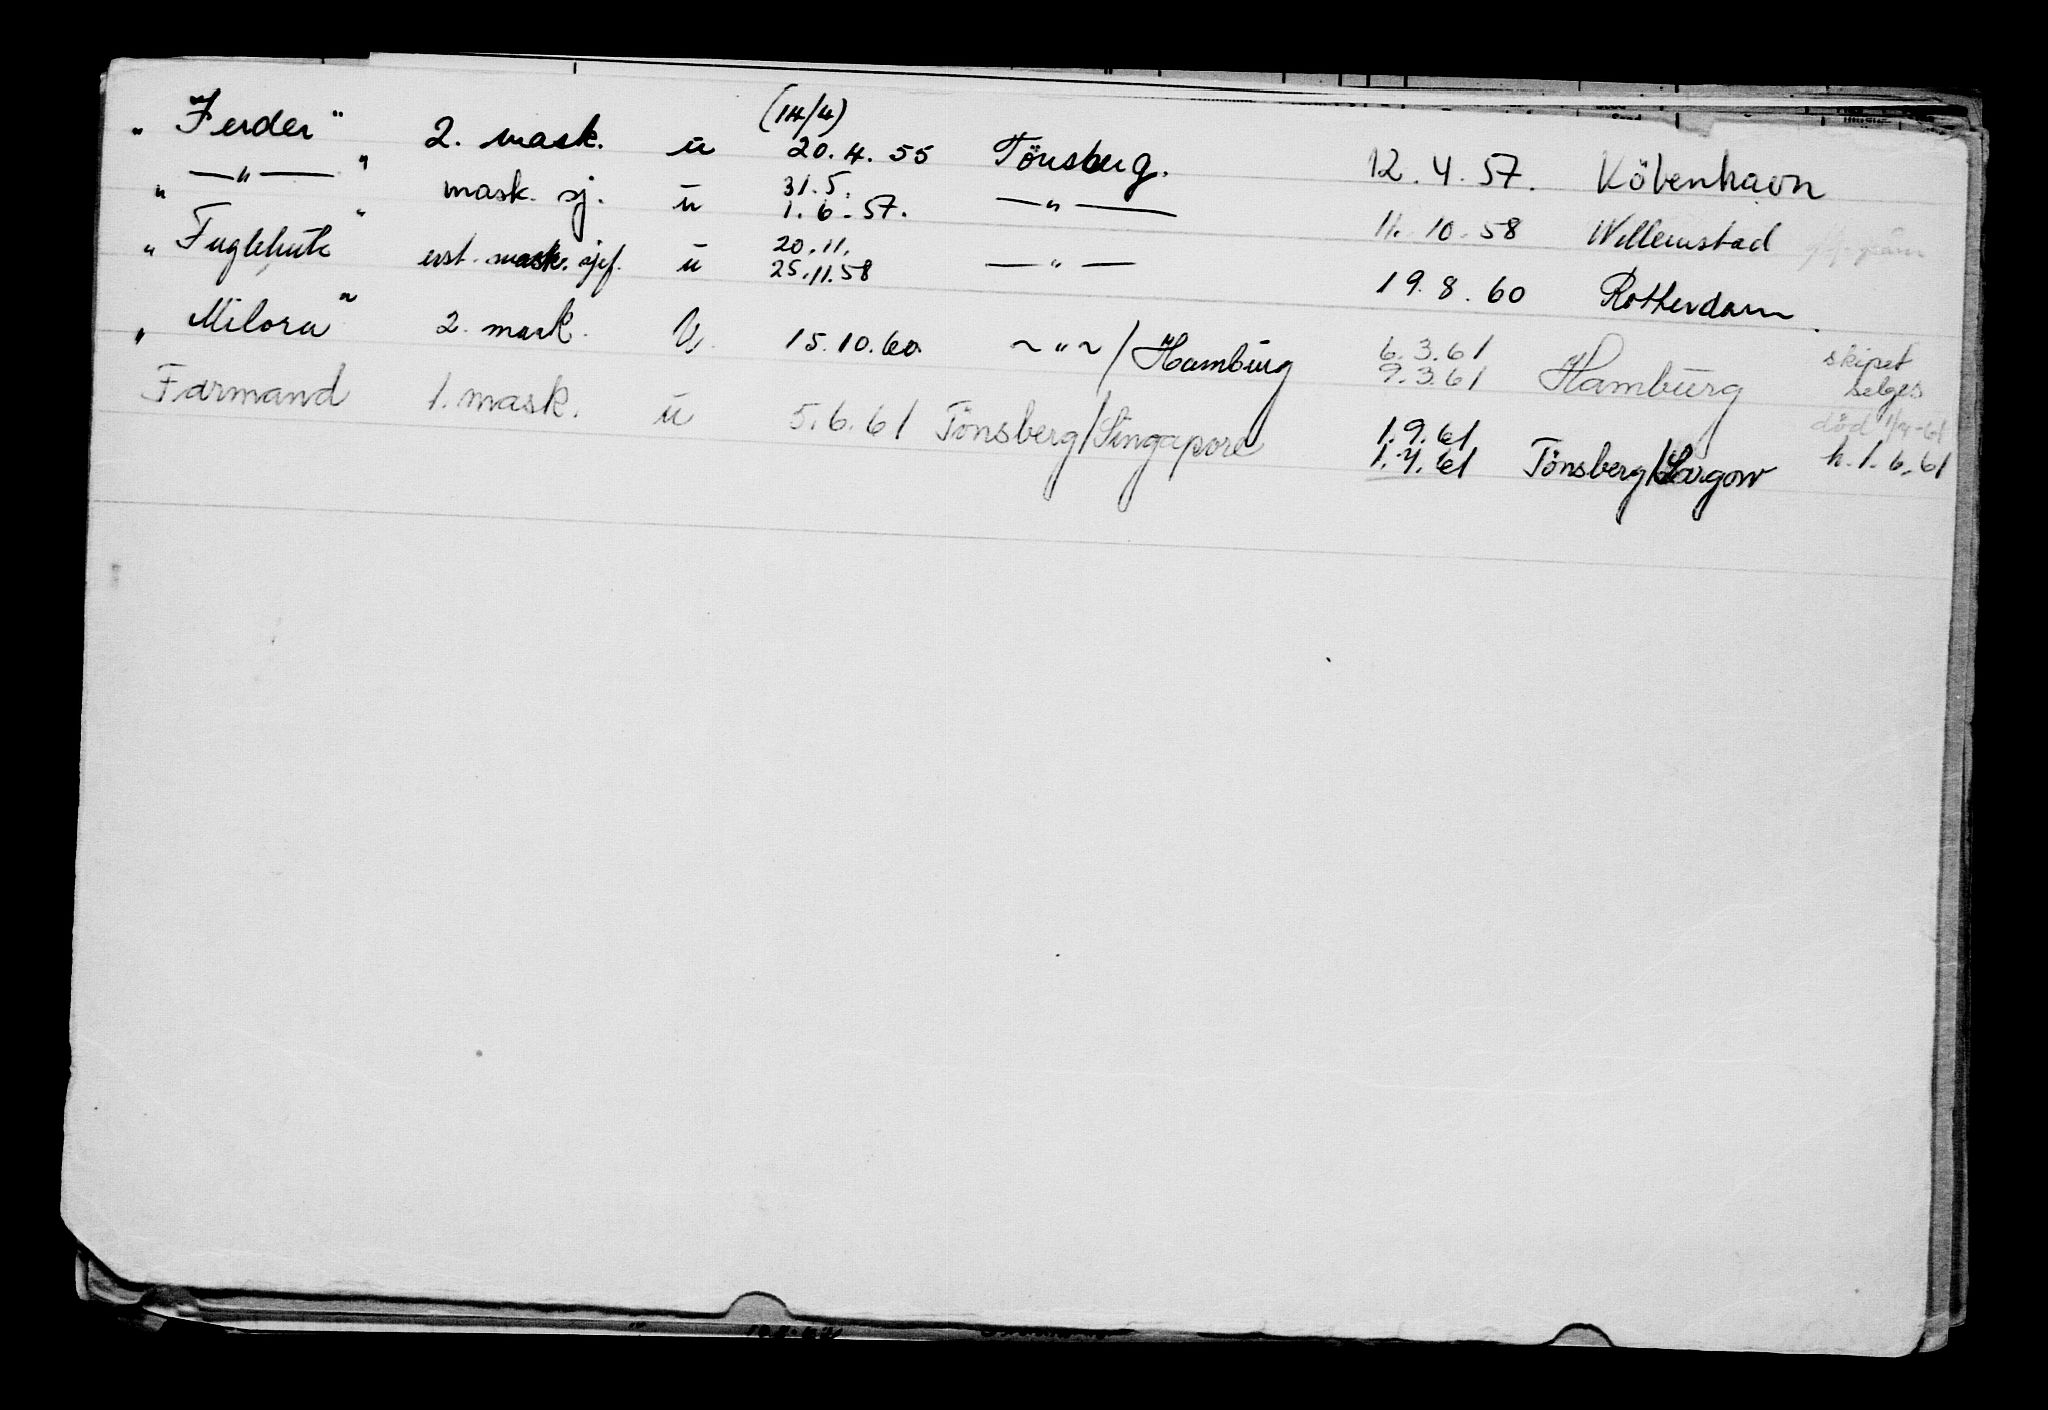 (14/4)
"Ferder" 2. mask. ü 20.4.55 Tönsberg. 12.4.57. Köbenhavn
31.5.
" —"— " mask. sj. ü 1.6.57. —"— 11.10.58 Willemstad
20.11.
"Fuglehute" erst. mask. sjef. ü 25.11.58 —"— 19.8.60 Rotterdam.
6.3.61 skipet
"Milora" 2. mask. U. 15.10.60. ~"~/Hamburg 9.3.61 Hamburg selges
1.9.61 död 1/9-61
Farmand 1. mask. ü 5.6.61 Tönsberg/Singapore 1.4.61 Tönsberg/ h.1.6.61